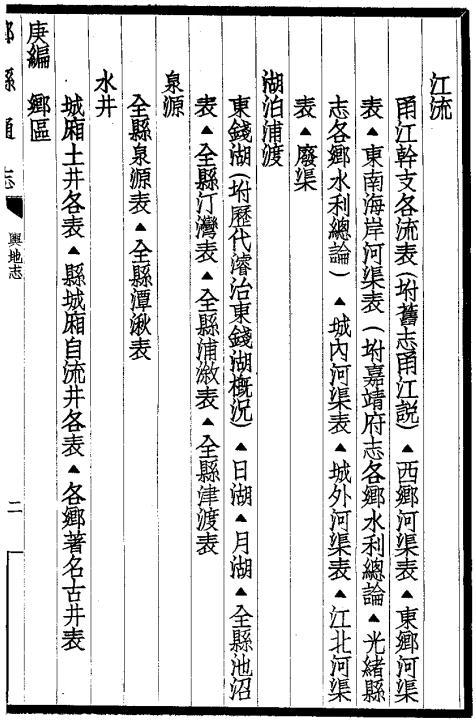 江流
甬江幹支各流表(坿舊志甬江説)▲西鄉河渠表▲東鄉河渠
表▲東南海岸河渠表(坿嘉靖府志各鄉水利總論▲光緒縣
志各鄉水利總論)▲城內河渠表▲城外河渠表▲江北河渠
表▲廢渠
湖泊浦渡
東錢湖(坿歷代濬治東錢湖概況)▲日湖▲月湖▲全縣池沼
表▲全縣汀灣表▲全縣浦漵表▲全縣津渡表
泉源
全縣泉源表▲全縣潭湫表
水井
城廂土井各表▲縣城廂自流井各表▲各鄉著名古井表
庚編 鄉區
縣通志 輿地志 二